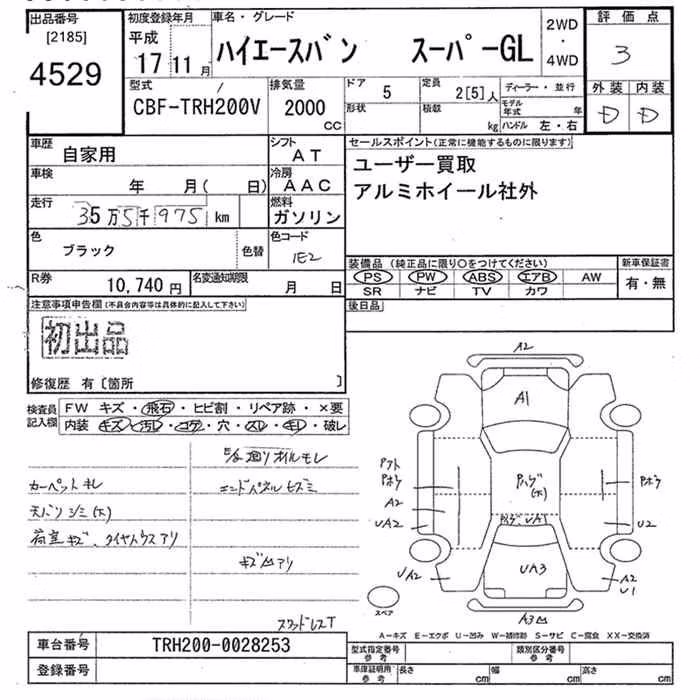 出品番号 初度登録年月 車名・グレード 評価点
[2185] 平成 2WD・4WD
4529 17 11月 ハイエースバン スーパーGL 3
型式 排気量 ドア 定員 ディーラー・並行 外装 内装
CBF-TRH200V 2000 CC 5 2[5]人 モデル年式 年 D D
形状 積載 kg ハンドル 左・右
車歴 自家用 シフト AT セールスポイント(正常に機能するものに限ります)
車検 年 月( 日) 冷房 AAC ユーザー買取
走行 35万5千975km 燃料 ガソリン アルミホイール社外
色 ブラック 色替 色コード 1E2
装備品(純正品に限り○をつけてください) 新車保証書
PS PW ABS エアB AW 有・無
SR ナビ TV カワ
R券 10,740円 名変通知期限 月 日
後日品
注意事項申告欄(不具合内容等は具体的に記入して下さい)
初出品
修復歴 有〔箇所 〕
検査員記入欄 FW キズ・飛石・ヒビ割・リペア跡・×要
内装 キズ・汚レ・コゲ・穴・スレ・キレ・破レ
オイルモレ
カーペット キレ
天バリ シミ(大)
荷室 キズ、タイヤハウス アリ
A2
A1
A2
UA2
UA2
U2
UA3
A2
U1
A3
スペア
A-キズ E-エクボ U-凹み W-補修跡 S-サビ C-腐食 XX-交換済
車台番号 TRH200-0028253 型式指定番号 参考 類別区分番号 参考
登録番号 車庫証明用 参考 長さ cm 幅 cm 高さ cm